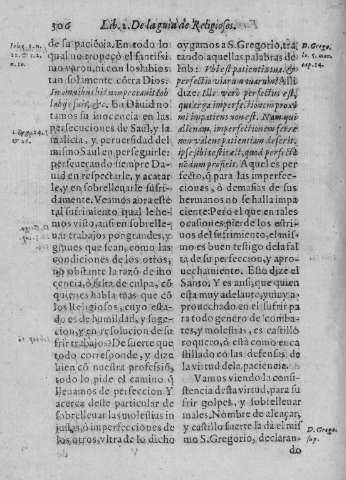 306 Lib. 2. De la guia de Religiosos.
de su paciẽcia. En todo lo
qual no tropeçò el santissi-
mo varon, ni con los labios
tan solamente cõtra Dios:
In omnibus his non peccauit Iob
labijs suis, &c. En Dauid no-
tamos su inocencia en las
persecuciones de Saul, y la
malicia, y peruersidad del
mismo Saul en perseguirle:
perseuerando siempre Da-
uid en respectarle, y acatar-
le, y en sobrelleuarle sufri-
damente. Veamos aora es-
tal sufrimiento qual le he-
mos visto, aũ en sobrelle-
uar trabajos por grandes, y
graues que sean, como las
condiciones de los otros,
no obstante la razõ de ino-
cencia, ò falta de culpa, cõ
quienes habla mas que cõ
los Religiosos, cuyo esta-
do es de humildad, y suge-
cion, y en resolucion de su-
frir trabajos? De suerte que
todo corresponde, y dize
bien cõ nuestra professiõ,
todo lo pide el camino q̃
lleuamos de perfeccion. Y
acerca deste particular de
sobrelleuar las molestias in
justas, ò imperfecciones de
los otros, vltra de lo dicho
oygamos a S. Gregorio, tra
tando aquellas palabras de
Iob:
dize: Ille vere perfectus est,
qui erga imperfectionem proxi
mi impatiens non est. Nam qui
alienam imperfectionem ferre
non valens patientiam deserit,
ipse sibi testis est, quod perfectè
nõdum proficit. Aquel es per
fecto, q̃ para las imperfec-
ciones, ò demasias de sus
hermanos no se halla impa
ciente: Pero el que en tales
ocasiones pierde los estri-
uos del sufrimiento, el mis-
mo es buen testigo de la fal
ta de su perfeccion, y apro-
uechamiento. Esto dize el
Santo. Y es ansi, que quien
esta muy adelante, y muy a-
prouechado en el sufrir pa
ra todo genero de comba-
tes, y molestias, es castillo
roquero, ò està como enca
stillado cõ las defensas de
la virtud de la paciencia.
Vamos viendo la consi-
stencia desta virtud, para su
frir golpes, y sobrelleuar
males. Nombre de alcaçar,
y castillo fuerte la dà el mis
mo S. Gregorio, declaran-
do
D. Grego.
D. Grego.
sup.